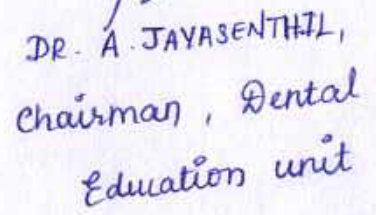 DR. A. JAYASENTHIL,
Chairman, Dental
Education unit